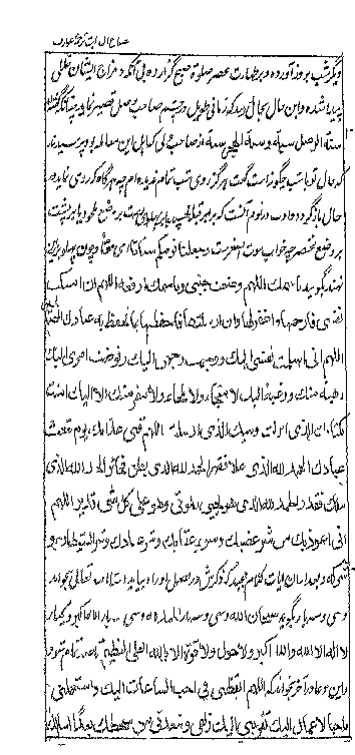 مصباح الهدایت ترجمهٔ عوارف
دیگر شب بروز آورده و بر طهارت عصر صلوة صبح گزارده بی آنکه در مزاج ایشان خللی
پدید آمده و این حال بحال رسد که زمانی طویل در چشم صاحب وصل قصیر نماید چنانکه گفته‌اند
سنة الوصل سنة و سنة الهجر سنة از صاحب دلی که اهل این معامله بود پرسیدند
که حال تو با شب چگونه است گفت هرگز روی شب تمام ندیده‌ام چه هرگاه که روی نماید در
حال بازگردد و ادب در نوم آنست که بر پهلوی راست بر وضع ملحود یا بر پشت
بر وضع محتضر چه خواب صورت مرگ است وجعلنا نومکم سباتا ای موتا و چون پهلو بر زمین
نهد بگوید باسمك اللهم وضعت جنبی وباسمك ارفعه اللهم ان امسكت
نفسی فارحمها واغفرلها وان ارسلتها فاحفظها بما تحفظ به عبادك الصالحین
اللهم انی اسلمت نفسی الیك ووجهت وجهی الیك وفوضت امری الیك
رهبة منك ورغبة الیك لا منجا ولا ملجاء ولا مفر منك الا الیك امنت
بکتابك الذی انزلت ونبیك الذی ارسلت اللهم قنی عذابك یوم تبعث
عبادك الحمد لله الذی علا فقهر الحمد لله الذی بطن فخبر الحمد لله الذی
ملك فقدر الحمد لله الذی هو یحیی الموتی وهو علی كل شیء قدیر اللهم
انی اعوذ بك من شر غضبك وسوء عقابك وشر عبادك وشر الشیطان و
شركه و بعد از آن آیات کلام مجید که ذکرش در فصل اوراد بیاید ان شاء الله تعالی بخواند
و سی و سه بار بگوید سبحان الله و سی و سه بار الحمد لله و سی بار الله اکبر و یکبار
لا اله الا الله والله اكبر ولا حول ولا قوة الا بالله العلی العظیم
و این دعا در آخر بخواند که اللهم ایقظنی فی احب الساعات الیك واستعملنی
باحب الاعمال الیك تقربنی الیك زلفی وتبعدنی من سخطك بعدا اسالك